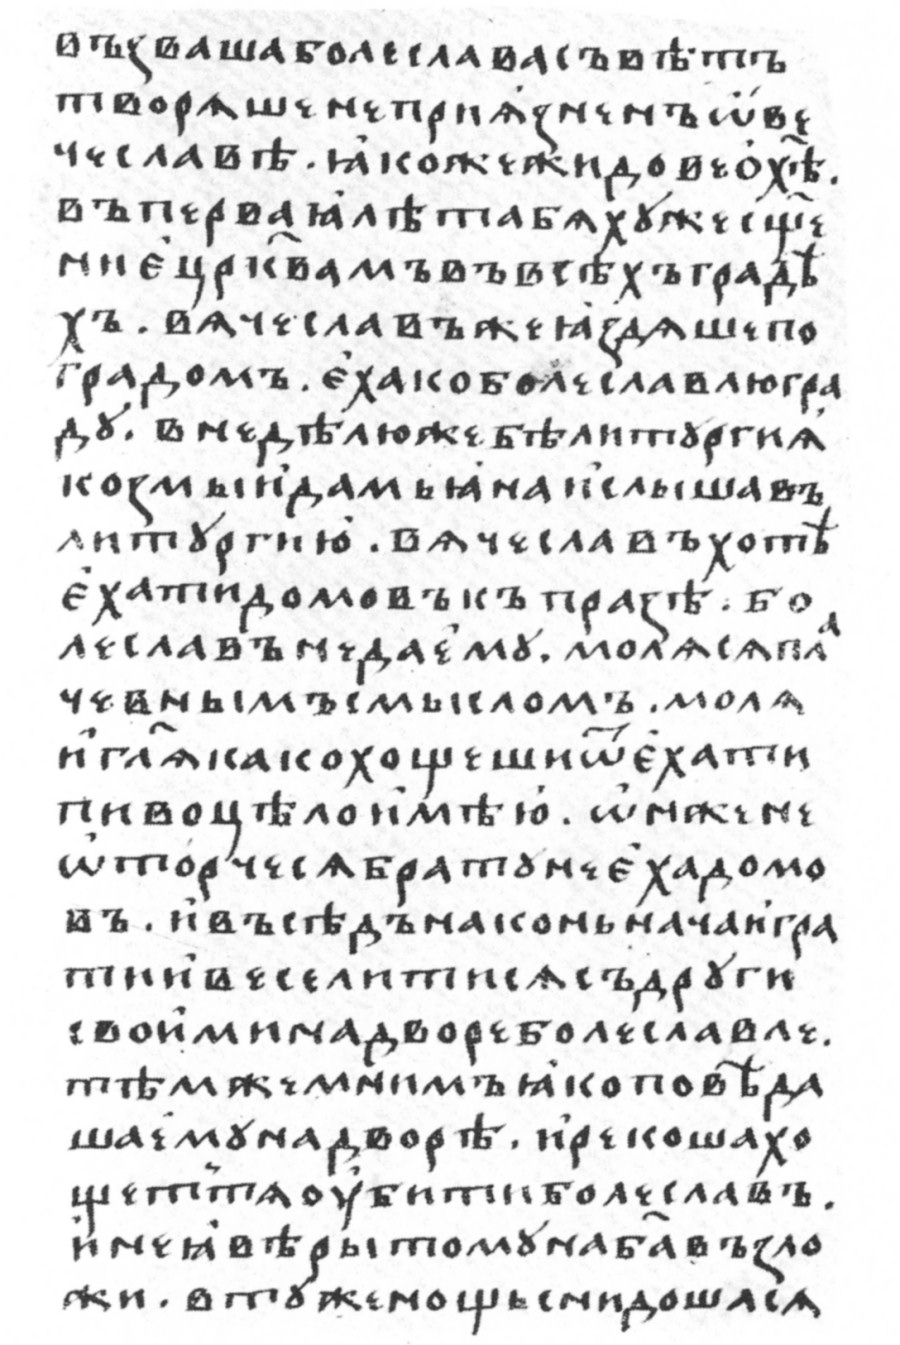 въꙁвашаболеславасъвѣтъ
творѧшенеприꙗ́ꙁненъѿве
чеславѣ. ꙗ́кожежидовеох҃ѣ.
въперваꙗ́лѣтабѧхуⷤжесщ҃е
нне́црк҃вамъвъвсѣхъградѣ
хъ. вѧчеславъжеꙗ́ꙁдѧшепо
градомъ. е́хакоболеславлюгра
дꙋ. внедѣлюжебѣлитꙋргиꙗ́
коꙁмыи҆дамьꙗ́наи҆слышавъ
литꙋргию́. вѧчеславъхотѣ
е́хатидомовъкъпраꙁѣ. бо
леславънедае́мꙋ. молѧсѧпла
чевнымъсмысломъ. молѧ
и҆гл҃ѧкакохощешиѿе́хати
пивоцѣлои҆мѣю́. ѡ҆нжене
ѿторчесѧбратꙋнее́хадомо
въ. и҆въсѣдънаконьначаи҆гра
тии҆веселитисѧсъдрꙋги
свои҆минадвореболеславле.
тѣмжемнимъꙗ́коповѣда
шае́мꙋнадворѣ. и҆рекошахо
щеттѧоу҆битиболеславъ.
и҆неꙗ́вѣрытомꙋнаба҃въꙁло
жи. втꙋженощьснидошасѧ